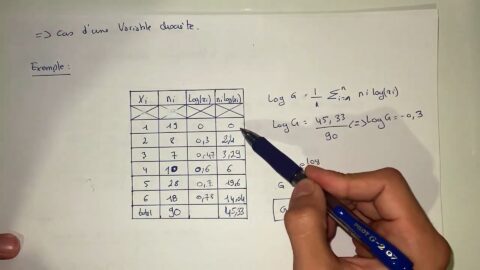 => Cas d'une Variable discrète.
Exemple:
Xi ni log(xi) ni log(xi)
1 19 0 0
2 8 0,3 2,4
3 7 0,47 3,29
4 10 0,6 6
5 28 0,7 19,6
6 18 0,78 14,04
total 90 45,33
Log G = 1/n Σ ni log(xi)
Log G = 45,33/90 (=> log G = 0,3
log
G
G
PILOT G-2 07